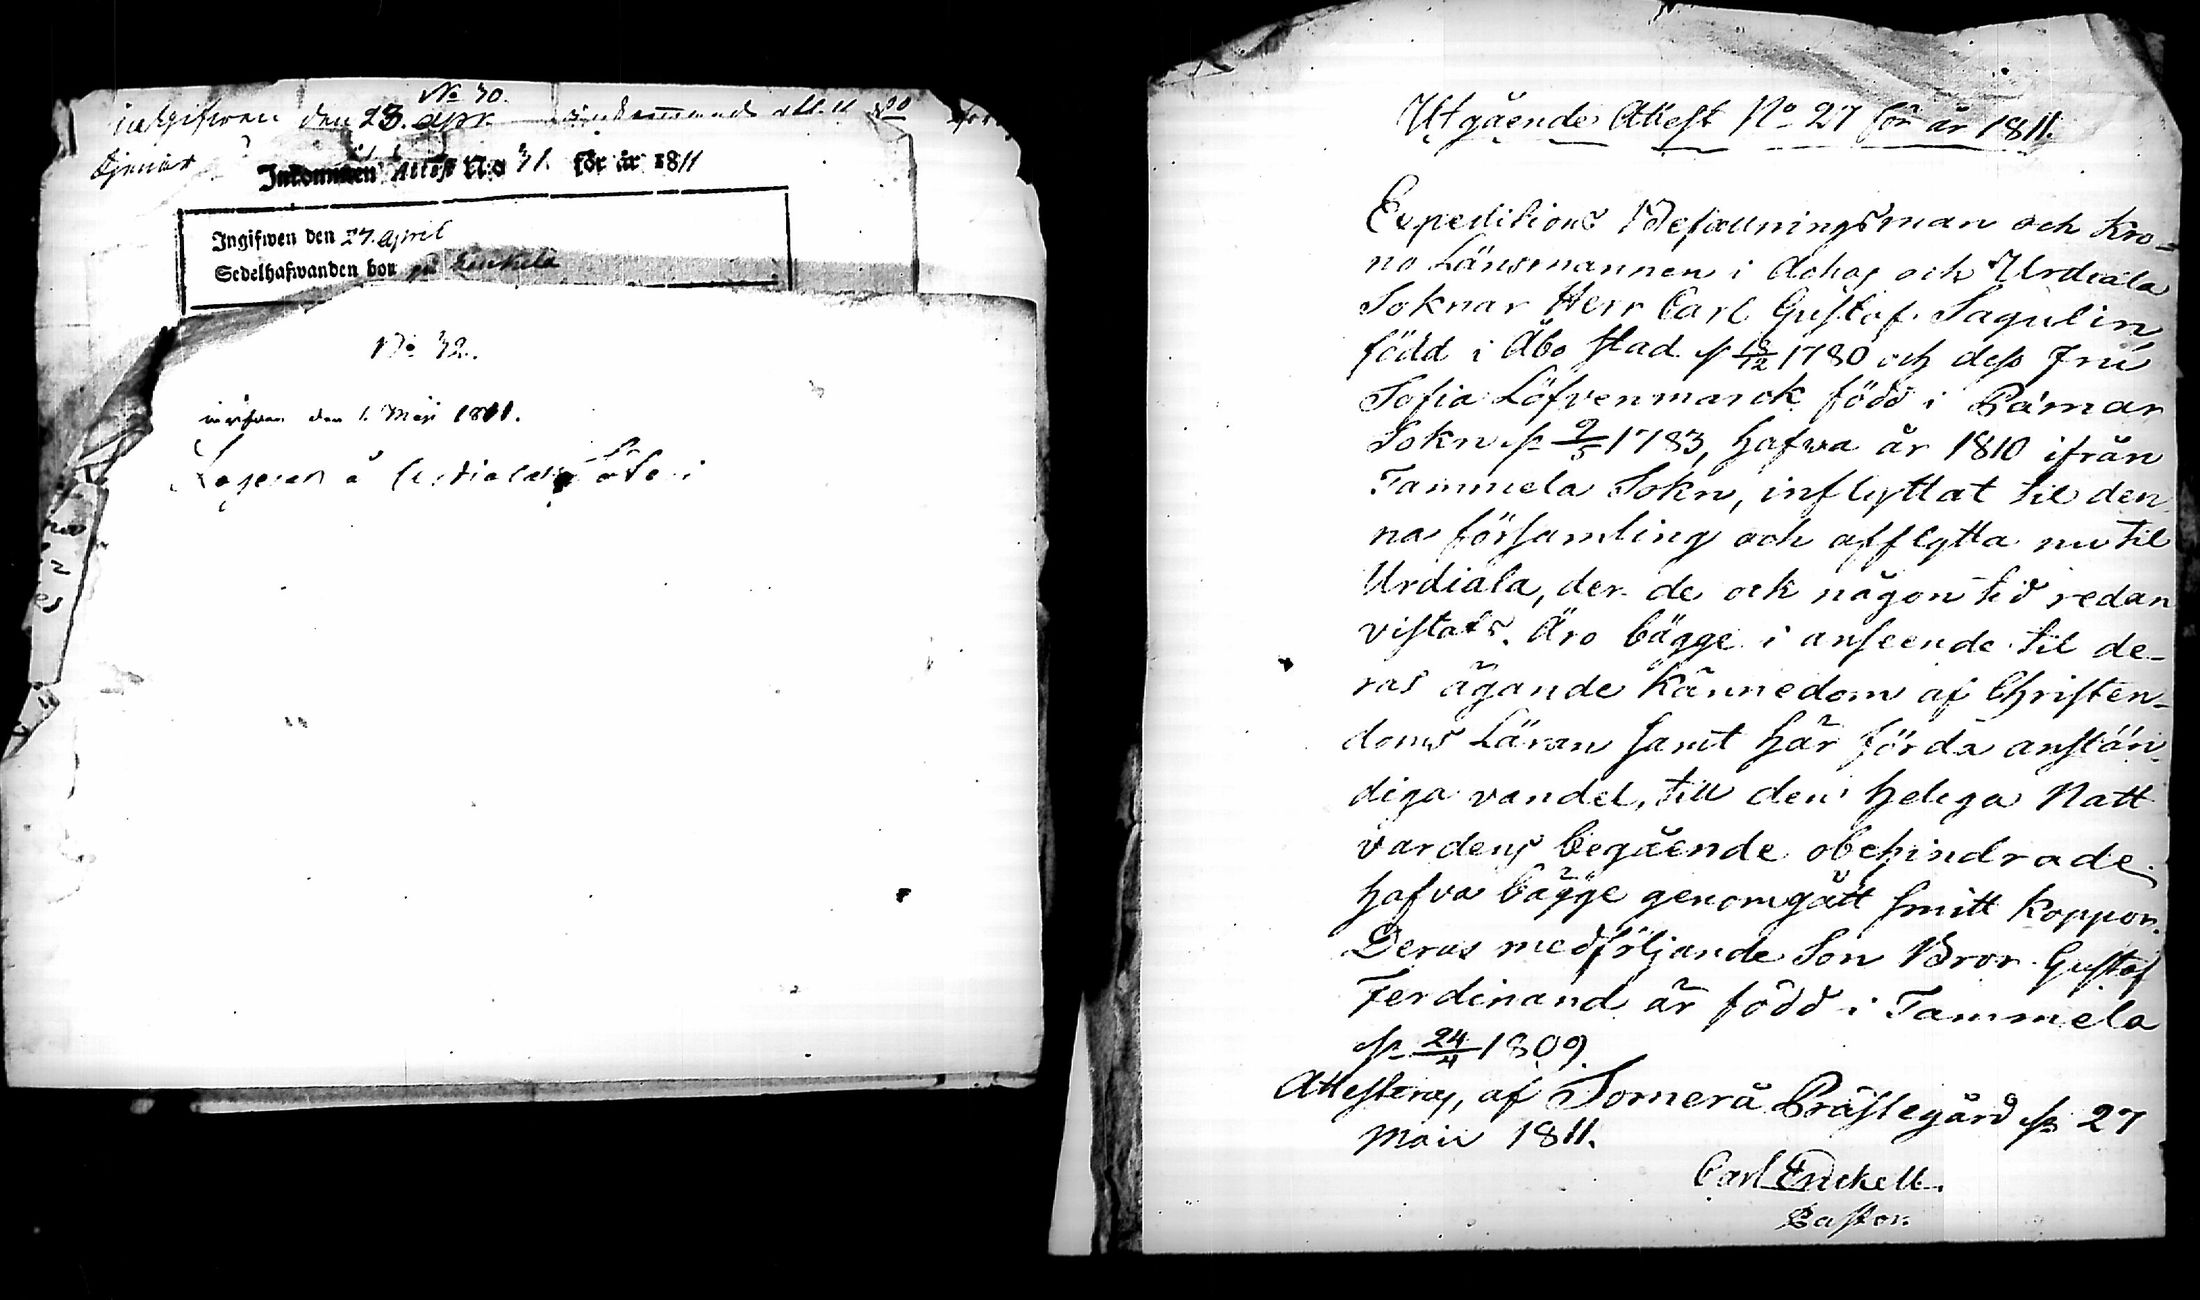 No 30.
inkgifwen den 23. Apr.
tjenar
Inkommen Attest No 31. för år 1811
Ingifwen den 27. April
Sedelhafwanden bor på
No 32.
den 1. Maji 1811.
å
Utgående Attest No 27 för år 1811.
Expeditions Befallningsman och Kro=
no Länsmannen i Achas och Urdiala
Soknar Herr Carl Gustaf Sagulin
född i Åbo stad d 13/12 1780 och dess Fru
Sofia Löfvenmarck född i Pämar
Sokn d 9/5 1783, hafva år 1810 ifrån
Tammela Sokn, inflyttat til den
na församling och afflytta nu til
Urdiala, der de ock någon tid redan
vistats. Äro bägge i anseende til de-
ras ägande kännedom af Christen-
doms Läran samt här förda anstän-
diga vandel, till den heliga Natt
vardens begående obehindrade.
hafva bägge genomgått smitt koppor.
Deras medföljande Son Bror Gustaf
Ferdinand är född i Tammela
d 24/4 1809.
Attesteras, af Somerå Prästegård d 27
Maii 1811.
Carl Enckell.
Pastor.